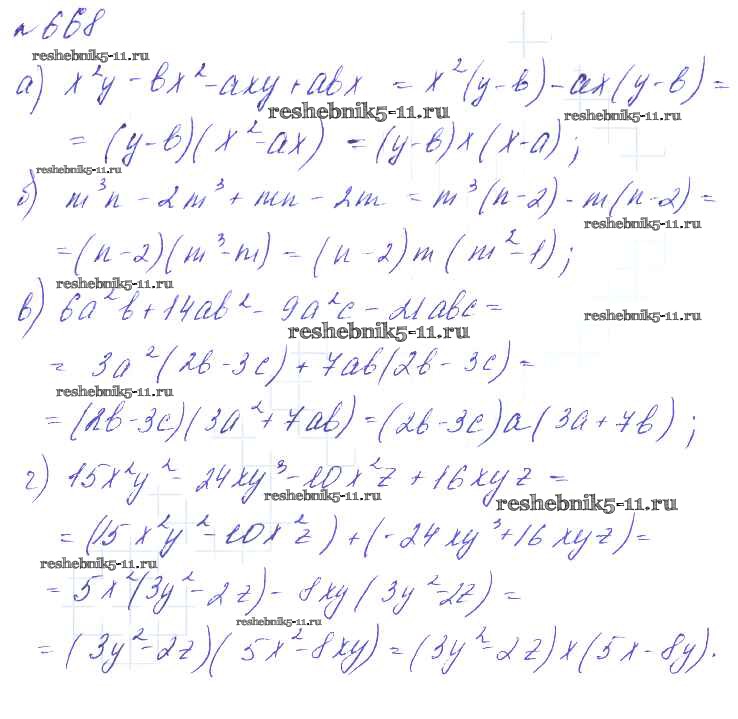 №668
reshebnik5-11.ru
а) x²y - вx² - axy + aвx = x²(y-в) - ax(y-в) =
reshebnik5-11.ru reshebnik5-11.ru
= (y-в)(x²-ax) = (y-в)x(x-a);
reshebnik5-11.ru
б) m³n - 2m³ + mn - 2m = m³(n-2) - m(n-2) =
reshebnik5-11.ru
= (n-2)(m³-m) = (n-2)m(m²-1);
reshebnik5-11.ru
в) 6a²b + 14ab² - 9a²c - 21abc =
reshebnik5-11.ru reshebnik5-11.ru
= 3a²(2b-3c) + 7ab(2b-3c) =
reshebnik5-11.ru
= (2b-3c)(3a²+7ab) = (2b-3c)a(3a+7b);
г) 15x²y² - 24xy³ - 10x²z + 16xyz =
reshebnik5-11.ru reshebnik5-11.ru
= (15x²y² - 10x²z) + (-24xy³ + 16xyz) =
reshebnik5-11.ru
= 5x²(3y²-2z) - 8xy(3y²-2z) =
reshebnik5-11.ru
= (3y²-2z)(5x²-8xy) = (3y²-2z)x(5x-8y).